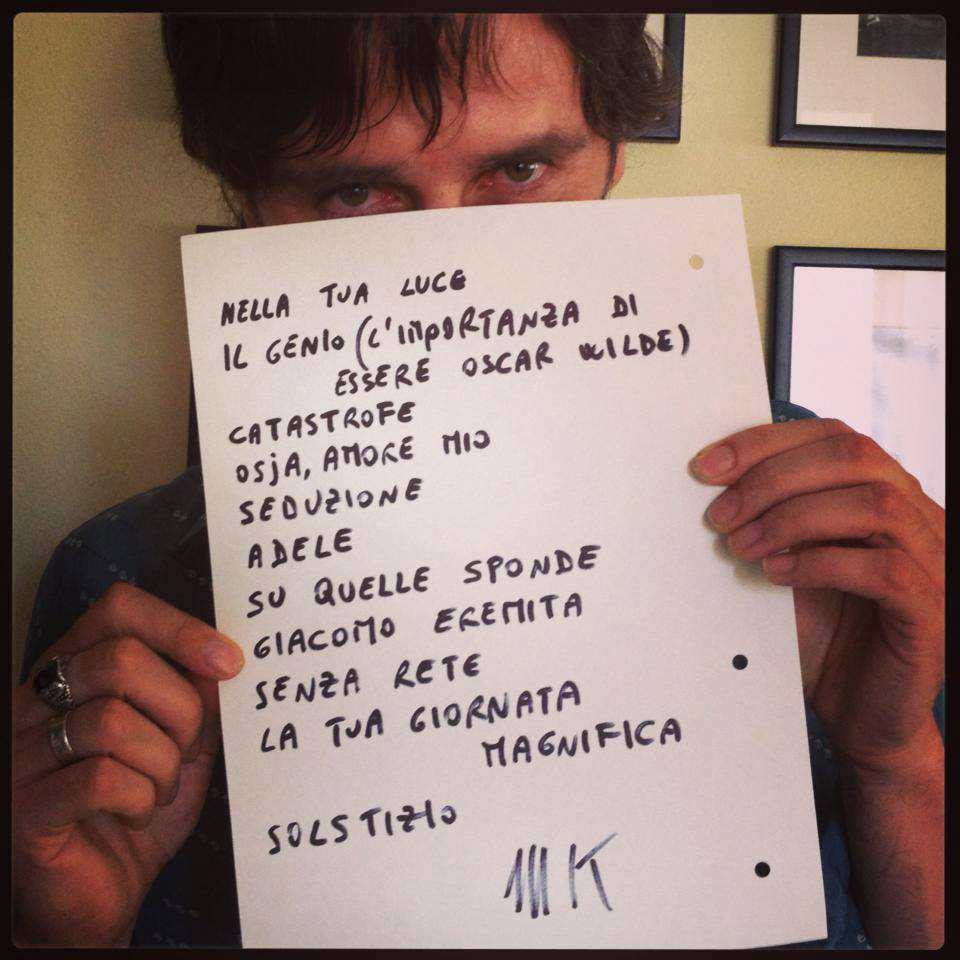 NELLA TUA LUCE
IL GENIO (L'IMPORTANZA DI
ESSERE OSCAR WILDE)
CATASTROFE
OSJA, AMORE MIO
SEDUZIONE
ADELE
SU QUELLE SPONDE
GIACOMO EREMITA
SENZA RETE
LA TUA GIORNATA
MAGNIFICA
SOLSTIZIO
MK